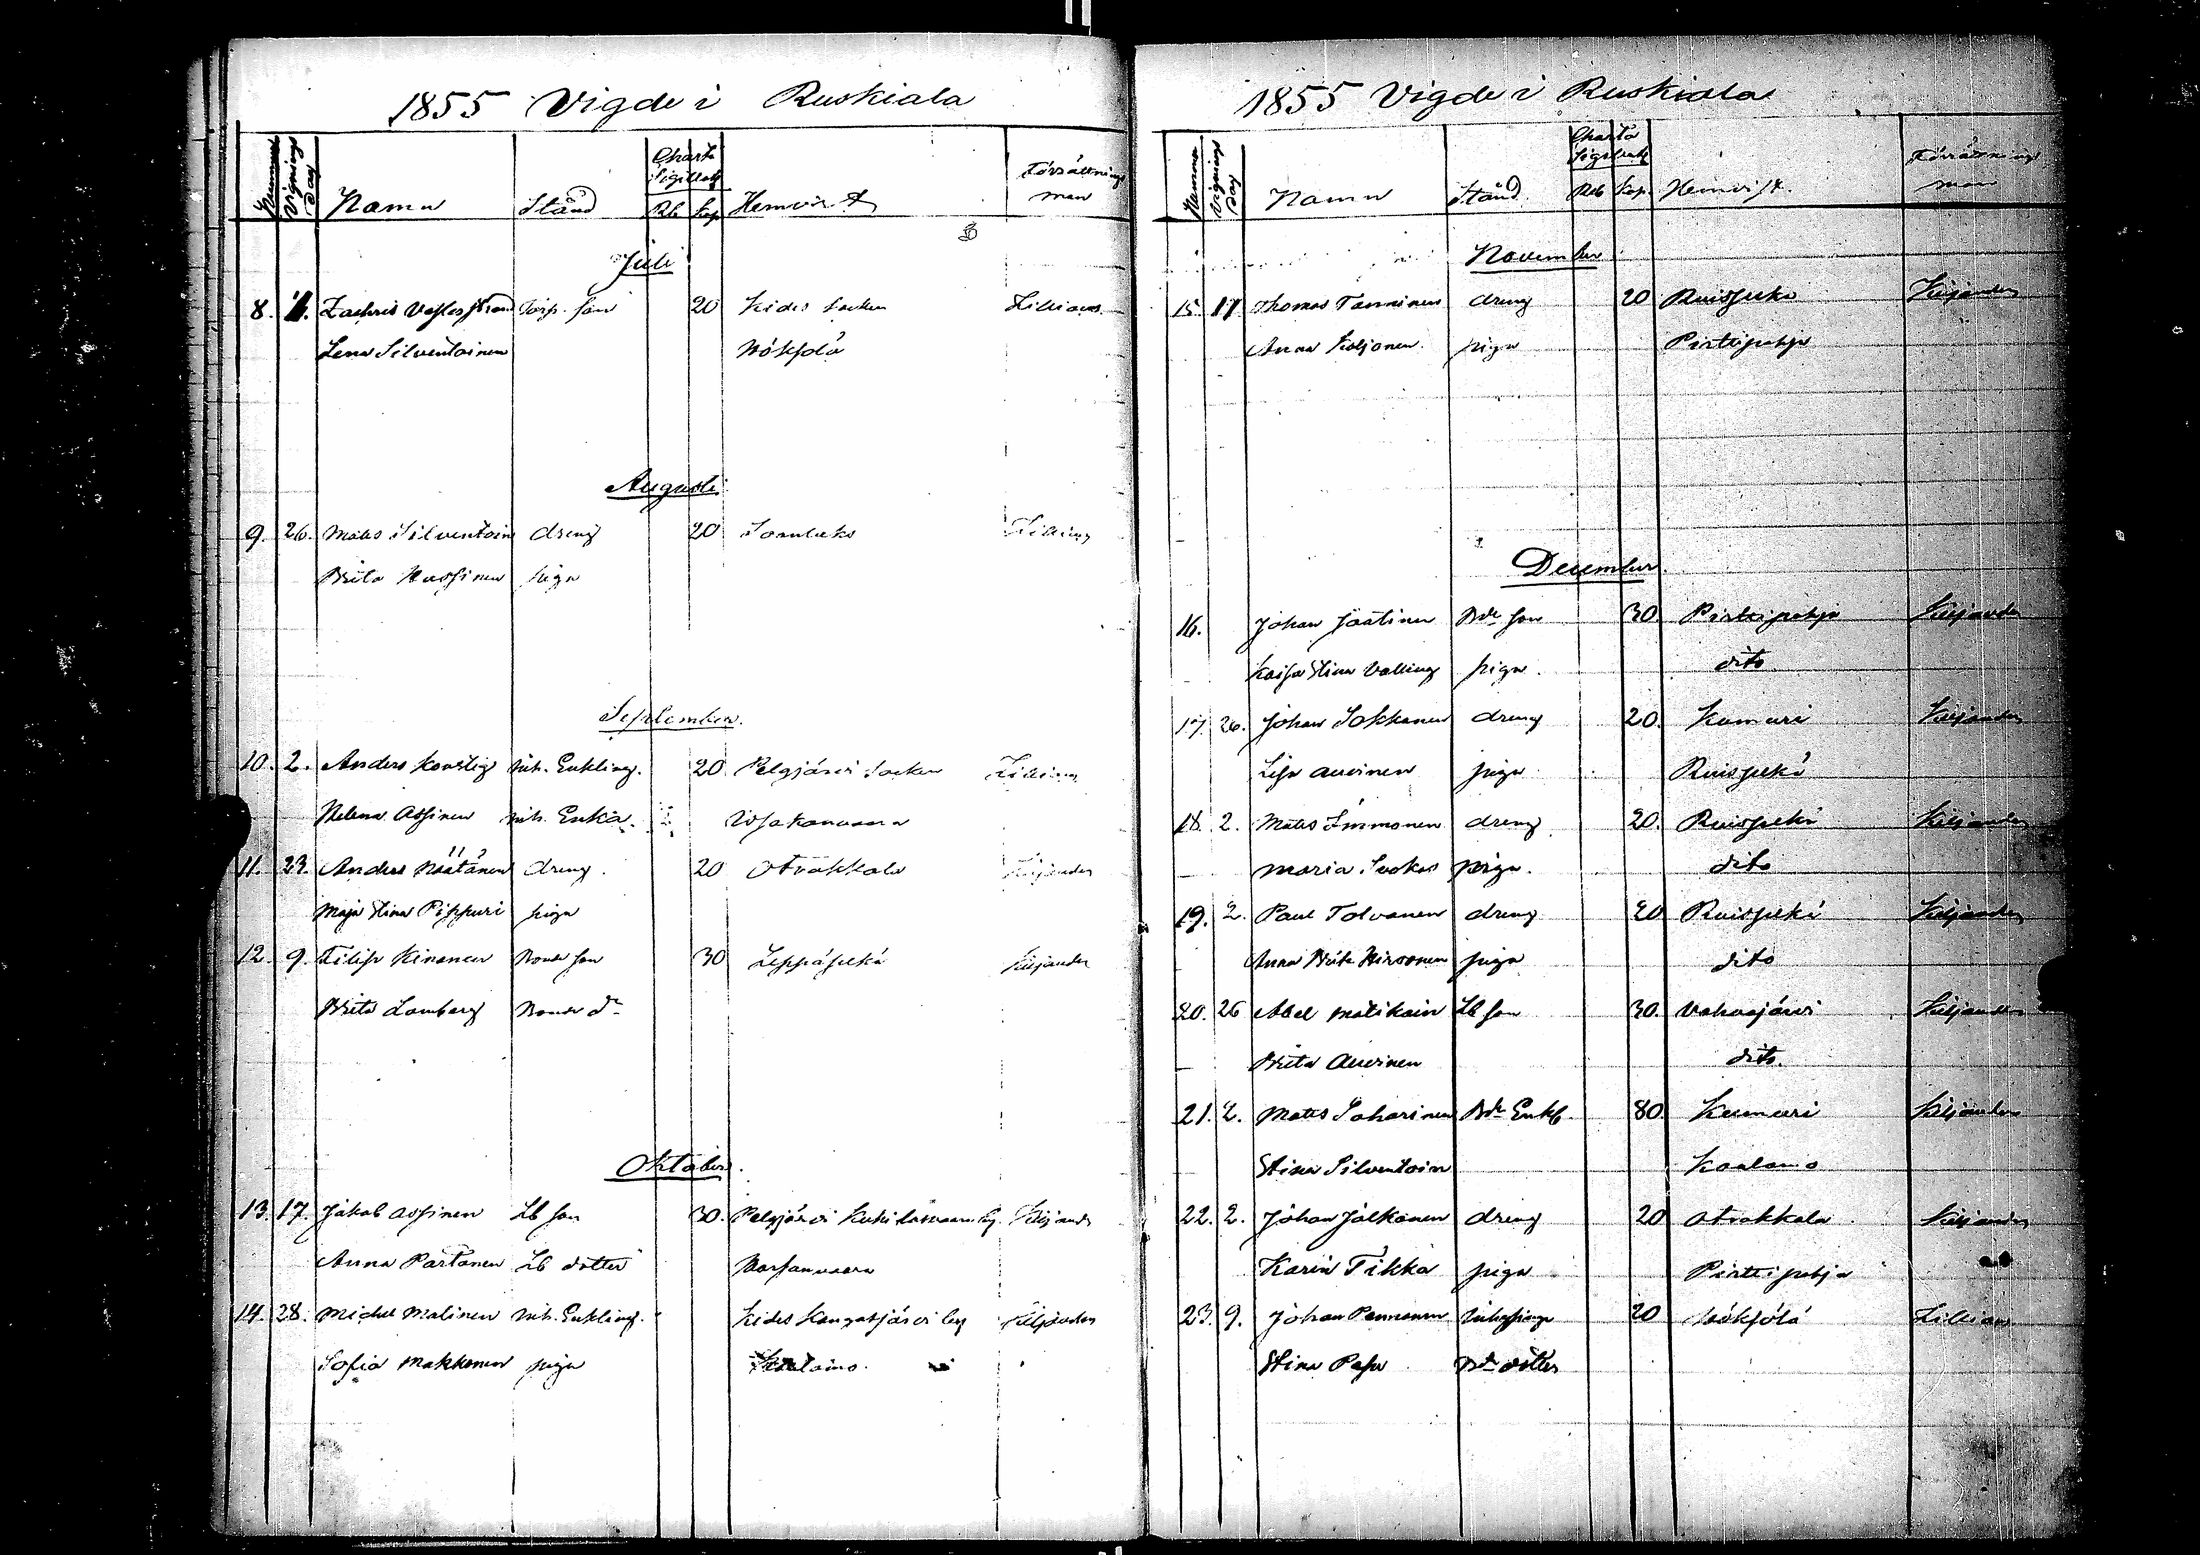 1855 Vigde i Ruskiala
Nummer Vignings Dag Namn Stånd Charta Sigillat Rb Kop Hemvist Förrättnings man
Juli
8. 20 Kides Socken
Lena Silventoinen
Augusti
9. 26. Mats Silventoin dreng 20
Brita piga
September.
10. 2. Anders enkling. 20 Pelgjärvi Socken
Helena Assinen Enka.
11. 23. Anders Näätänen dreng. 20 Otrakkala Kiljander
Maja Stina Pippuri piga
12. 9. Filip Kinanen Bonde son 30 Leppäselkä Kiljander
Brita Lomberg Bonde dr
Oktober.
13. 17. Jakob Assinen Lb son 30. Pelgjärvi Kiljander
Anna Partanen Lb dotter
14. 28. Michel Malinen Enkling. Kides Kangasjärvi by Kiljander
Sofia Makkonen piga Kaalamo.
1855 Vigde i Ruskiala
Nummer Vignings Dag Namn Stånd. Charta Sigillat Rb Kop. Hemvist. Förrättnings man
November
15 17 Thomas Tanninen dreng 20 Ruisselkä Kiljander
Anna Koljonen piga Pirttipohja
December.
16. Johan Jäätinen Bde son 30. Pirttipohja Kiljander
Kaisa Stina piga. dito
17. 26. Johan Sokkanen dreng 20. Kumuri Kiljander
Lisa Auvinen piga Ruisselkä
18. 2. Mats Immonen dreng 20. Ruisselkä Kiljander
Maria piga. dito
19. 2. Paul Tolvanen dreng 20 Ruisselkä Kiljander
Anna Brita Hirvonen piga dito
20. 26 Abel Matikain Lb son 30. Vahvajärvi Kiljander
Brita Auvinen dito.
21. 2. Mats Saharinen Bde Enkl. 80. Kumuri Kiljander
Stina Silventoin Kaalamo
22. 2. Johan Jalkanen dreng 20 Otrakkala Kiljander
Karin Tikka piga Pirttipohja
23. 9. Johan Pennanen 20
Stina Bde dotter